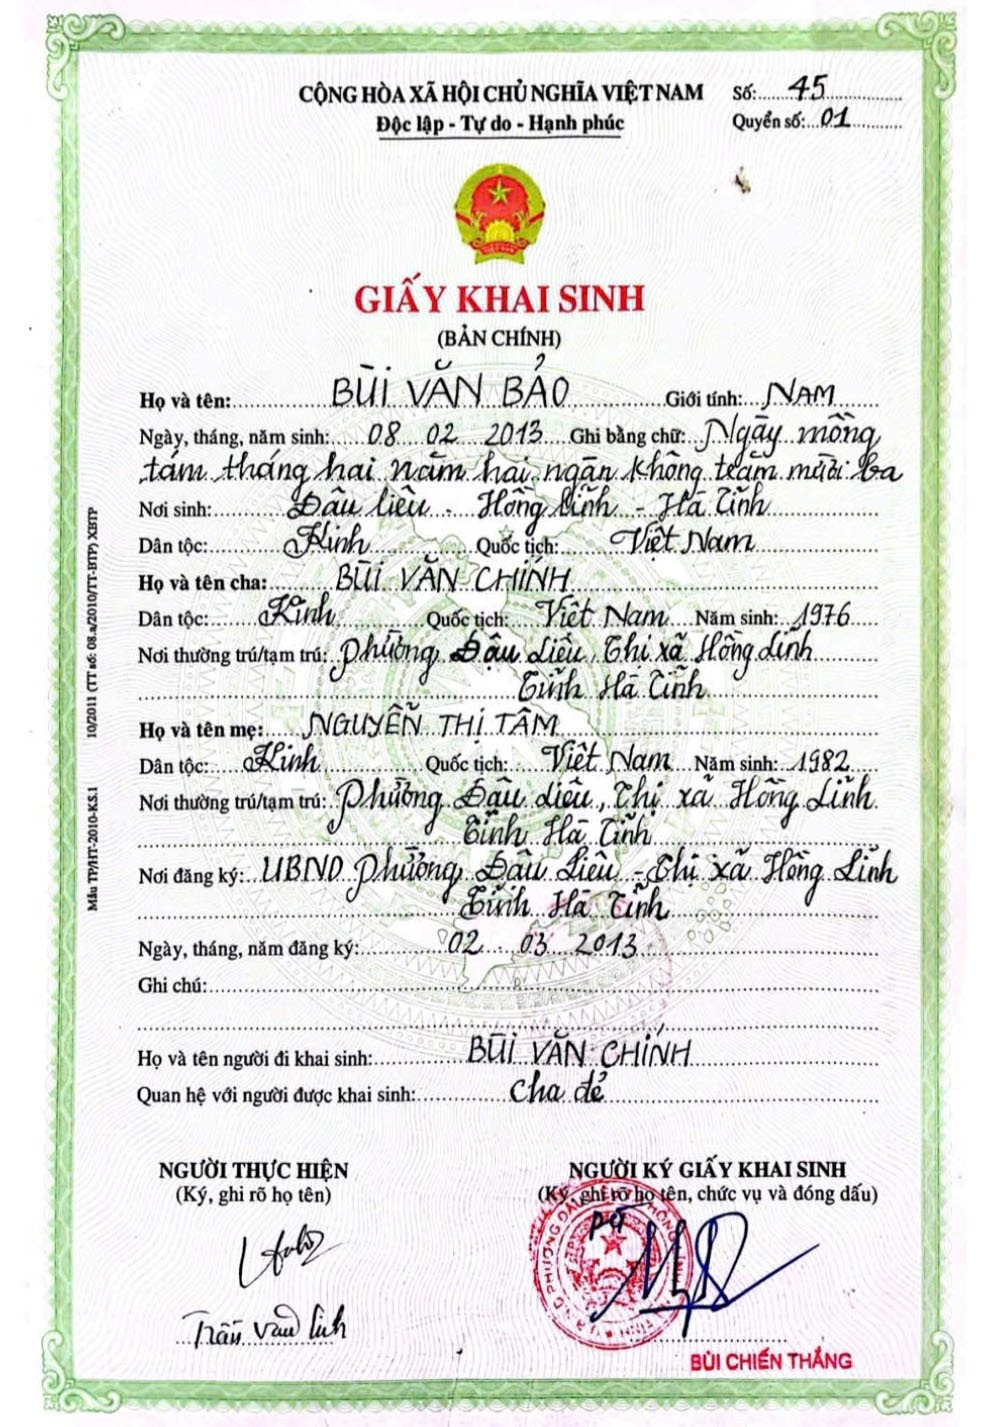 CỘNG HÒA XÃ HỘI CHỦ NGHĨA VIỆT NAM
Số: 45
Độc lập - Tự do - Hạnh phúc
Quyển số: 01
GIẤY KHAI SINH
(BẢN CHÍNH)
Họ và tên: BÙI VĂN BẢO Giới tính: NAM
Ngày, tháng, năm sinh: 08 02 2013 Ghi bằng chữ: Ngày mồng
tám tháng hai năm hai ngàn không trăm mười ba
Nơi sinh: Đậu liêu - Hồng Lĩnh - Hà Tĩnh
Dân tộc: Kinh Quốc tịch: Việt Nam
Họ và tên cha: BÙI VĂN CHÍNH
Dân tộc: Kinh Quốc tịch: Việt Nam Năm sinh: 1976
Nơi thường trú/tạm trú: Phường Đậu Liêu, Thị xã Hồng Lĩnh
Tỉnh Hà Tĩnh
Họ và tên mẹ: NGUYỄN THỊ TÂM
Dân tộc: Kinh Quốc tịch: Việt Nam Năm sinh: 1982
Nơi thường trú/tạm trú: Phường Đậu Liêu, Thị xã Hồng Lĩnh
Tỉnh Hà Tĩnh
Nơi đăng ký: UBND Phường Đậu Liêu - Thị xã Hồng Lĩnh
Tỉnh Hà Tĩnh
Ngày, tháng, năm đăng ký: 02 03 2013
Ghi chú:
Họ và tên người đi khai sinh: BÙI VĂN CHÍNH
Quan hệ với người được khai sinh: Cha đẻ
NGƯỜI THỰC HIỆN
(Ký, ghi rõ họ tên)
Trần Văn
NGƯỜI KÝ GIẤY KHAI SINH
(Ký, ghi rõ họ tên, chức vụ và đóng dấu)
BÙI CHIẾN THẮNG
Mẫu TP/HT-2010-KS.1 10/2011 (TT số: 08.a/2010/TT-BTP) XBTP